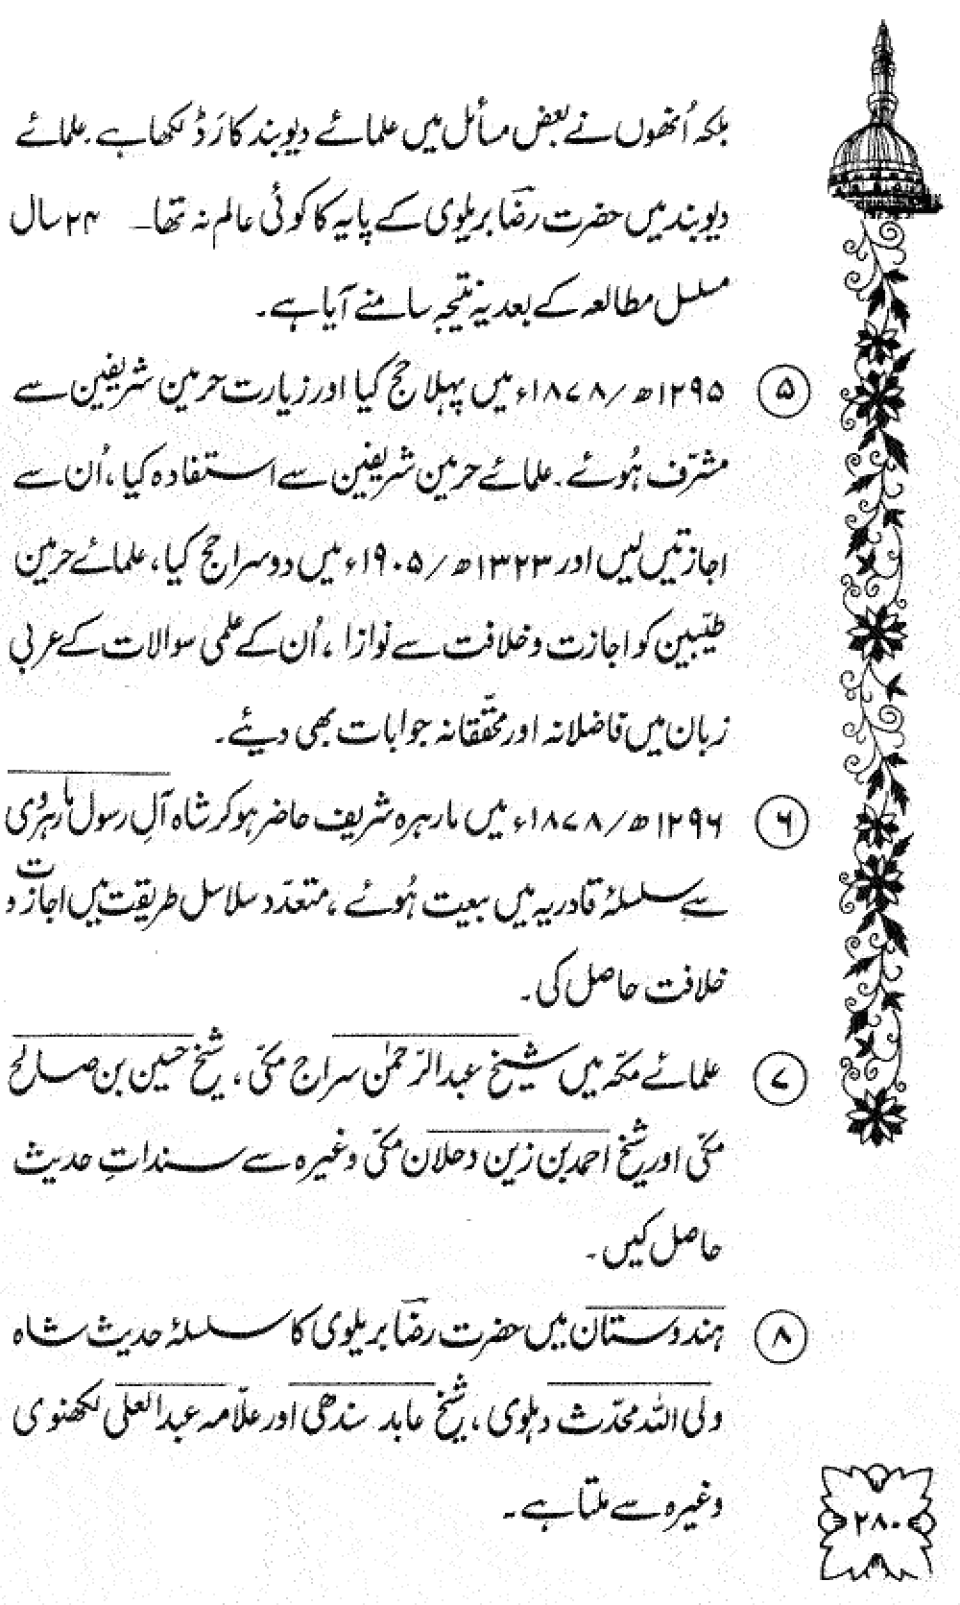 بلکہ اُنھوں نے بعض مسائل میں علمائے دیوبند کا رَد لکھا ہے۔ علمائے
دیوبند میں حضرت رضؔا بریلوی کے پایہ کا کوئی عالم نہ تھا — ۲۴ سال
مسلسل مطالعہ کے بعد یہ نتیجہ سامنے آیا ہے۔
۵ ۱۲۹۵ھ/۱۸۷۸ء میں پہلا حج کیا اور زیارت حرمین شریفین سے
مشرّف ہُوئے۔ علمائے حرمین شریفین سے استفادہ کیا، اُن سے
اجازتیں لیں اور ۱۳۲۳ھ/۱۹۰۵ء میں دوسرا حج کیا، علمائے حرمین
طیّبین کو اجازت و خلافت سے نوازا، اُن کے علمی سوالات کے عربی
زبان میں فاضلانہ اور محقّقانہ جوابات بھی دیئے۔
۶ ۱۲۹۶ھ/۱۸۷۸ء میں مارہرہ شریف حاضر ہو کر شاہ آلِ رسول مارہروی
سے سلسلۂ قادریہ میں بیعت ہُوئے، متعدّد سلاسل طریقت میں اجازت و
خلافت حاصل کی۔
۷ علمائے مکّہ میں شیخ عبدالرّحمٰن سراج مکّی، شیخ حسین بن صالح
مکّی اور شیخ احمد بن زین دحلان مکّی وغیرہ سے سنداتِ حدیث
حاصل کیں۔
۸ ہندوستان میں حضرت رضؔا بریلوی کا سلسلۂ حدیث شاہ
ولی اللہ محدّث دہلوی، شیخ عابد سندھی اور علّامہ عبدالعلی لکھنوی
وغیرہ سے ملتا ہے۔
۲۸۰